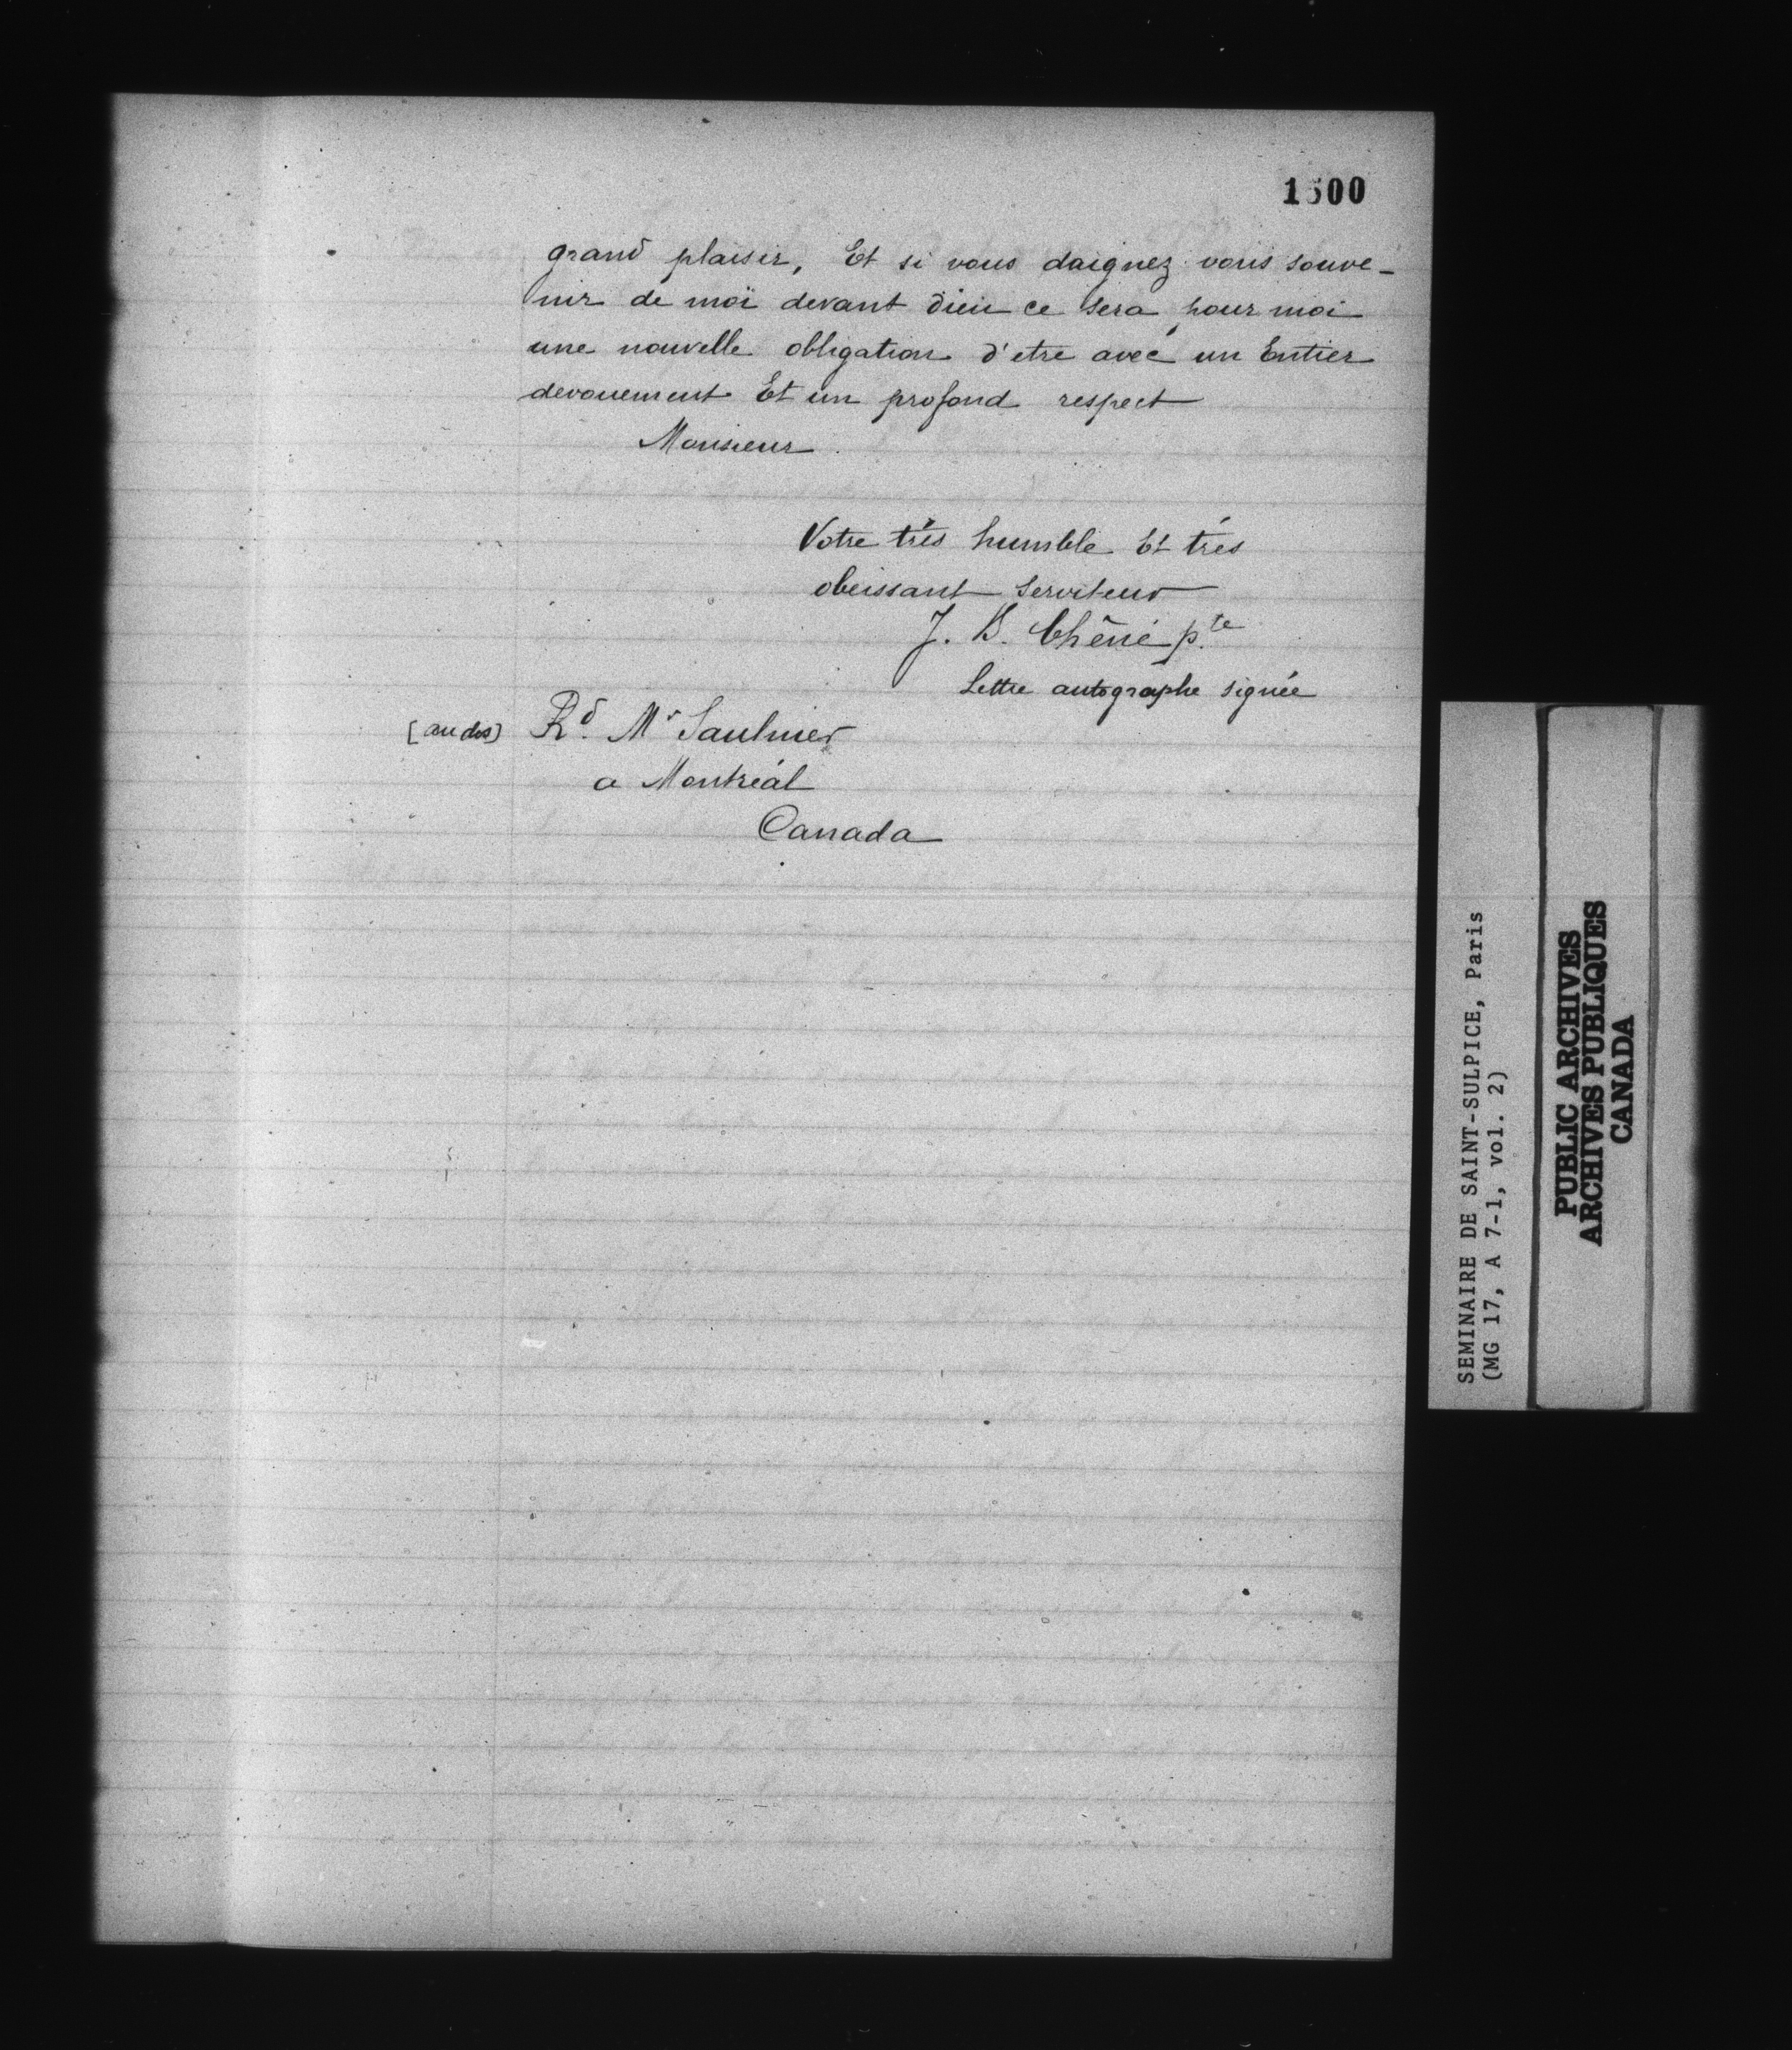 1500
grand plaisir, Et si vous daignez vous souve-
nir de moi devant dieu ce sera pour moi
une nouvelle obligation d'etre avec un Entier
devouement Et un profond respect
Monsieur
Votre trés humble Et trés
obeissant serviteur
J. B. Chêné p.te
Lettre autographe signée
[au dos] Rd. Mr Saulnier
a Montréal
Canada
SEMINAIRE DE SAINT-SULPICE, Paris
(MG 17, A 7-1, vol. 2)
PUBLIC ARCHIVES
ARCHIVES PUBLIQUES
CANADA